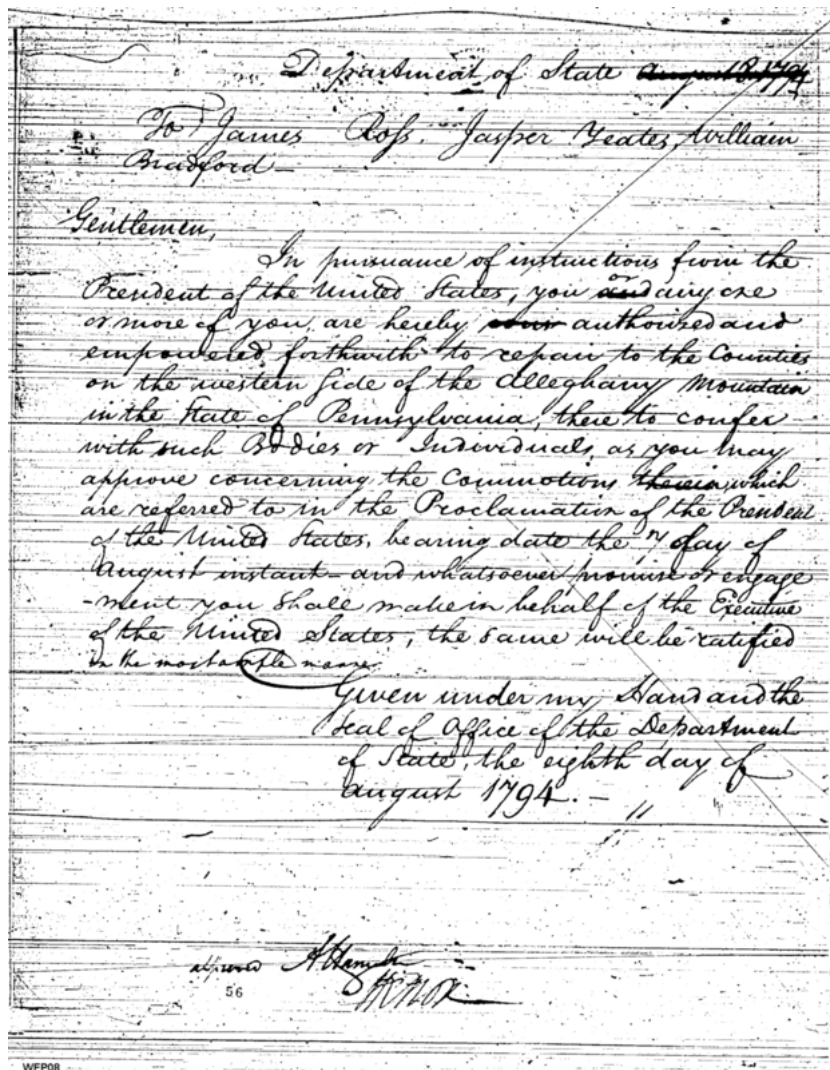 Department of State August 8. 1794
To James Ross. Jasper Yeates, William
Bradford —
Gentlemen,
In pursuance of instructions from the
President of the United States, you and or any one
or more of you, are hereby authorised and
empowered forthwith to repair to the Counties
on the western side of the Alleghany Mountain
in the State of Pennsylvania, there to confer
with such Bodies or Individuals, as you may
approve concerning the Commotions therein, which
are referred to in the Proclamation of the President
of the United States, bearing date the 7 day of
August instant — and whatsoever promise or engage
-ment you shall make in behalf of the Executive
of the United States, the same will be ratified
in the most ample manner.
Given under my Hand and the
Seal of Office of the Department
of State, the eighth day of
August 1794. —
approved A Hamilton
HKnox
56
WFP08